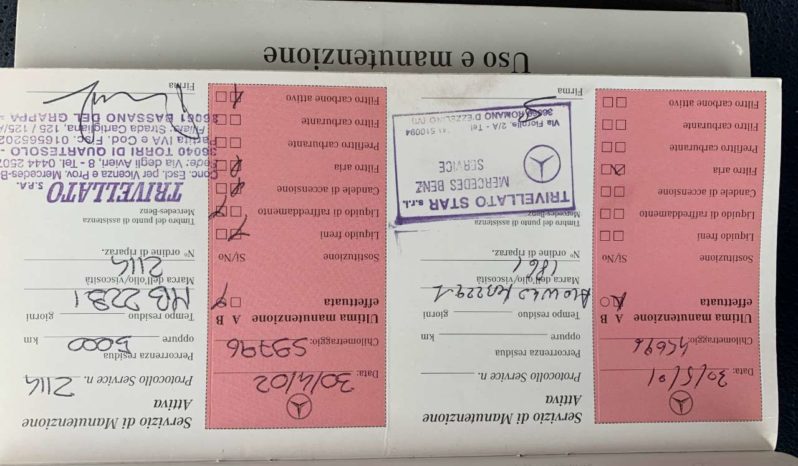 Data: 30/5/01
Chilometraggio: 45696
Ultima manutenzione A B
effettuata
Sostituzione Si/No
Liquido freni
Liquido di raffreddamento
Candele di accensione
Filtro aria
Prefiltro carburante
Filtro carburante
Filtro carbone attivo
Servizio di Manutenzione
Attiva
Protocollo Service n.
Percorrenza residua
oppure km
Tempo residuo giorni
Marca dell'olio/viscosità
N° ordine di riparaz.
Timbro del punto di assistenza
Mercedes-Benz
TRIVELLATO STAR s.r.l.
MERCEDES BENZ
SERVICE
Via Fiorolle, 2/A - Tel
510094
ROMANO D'EZZELINO
Firma
Data: 30/4/02
Chilometraggio: 59796
Ultima manutenzione A B
effettuata
Sostituzione Si/No
Liquido freni
Liquido di raffreddamento
Candele di accensione
Filtro aria
Prefiltro carburante
Filtro carburante
Filtro carbone attivo
Servizio di Manutenzione
Attiva
Protocollo Service n. 2114
Percorrenza residua
oppure 5000 km
Tempo residuo giorni
MB 229.1
Marca dell'olio/viscosità
2114
N° ordine di riparaz.
Timbro del punto di assistenza
Mercedes-Benz
TRIVELLATO S.P.A.
Conc. Escl. per Vicenza e Prov. Mercedes-B
Sede: Via degli Avieri, 8 - Tel. 0444 2507
36040 TORRI DI QUARTESOLO -
Partita IVA e Cod. Fisc. 016565202
Filiale: Strada Cartigliana, 125 / 125/A
36061 BASSANO DEL GRAPPA
Firma
Uso e manutenzione